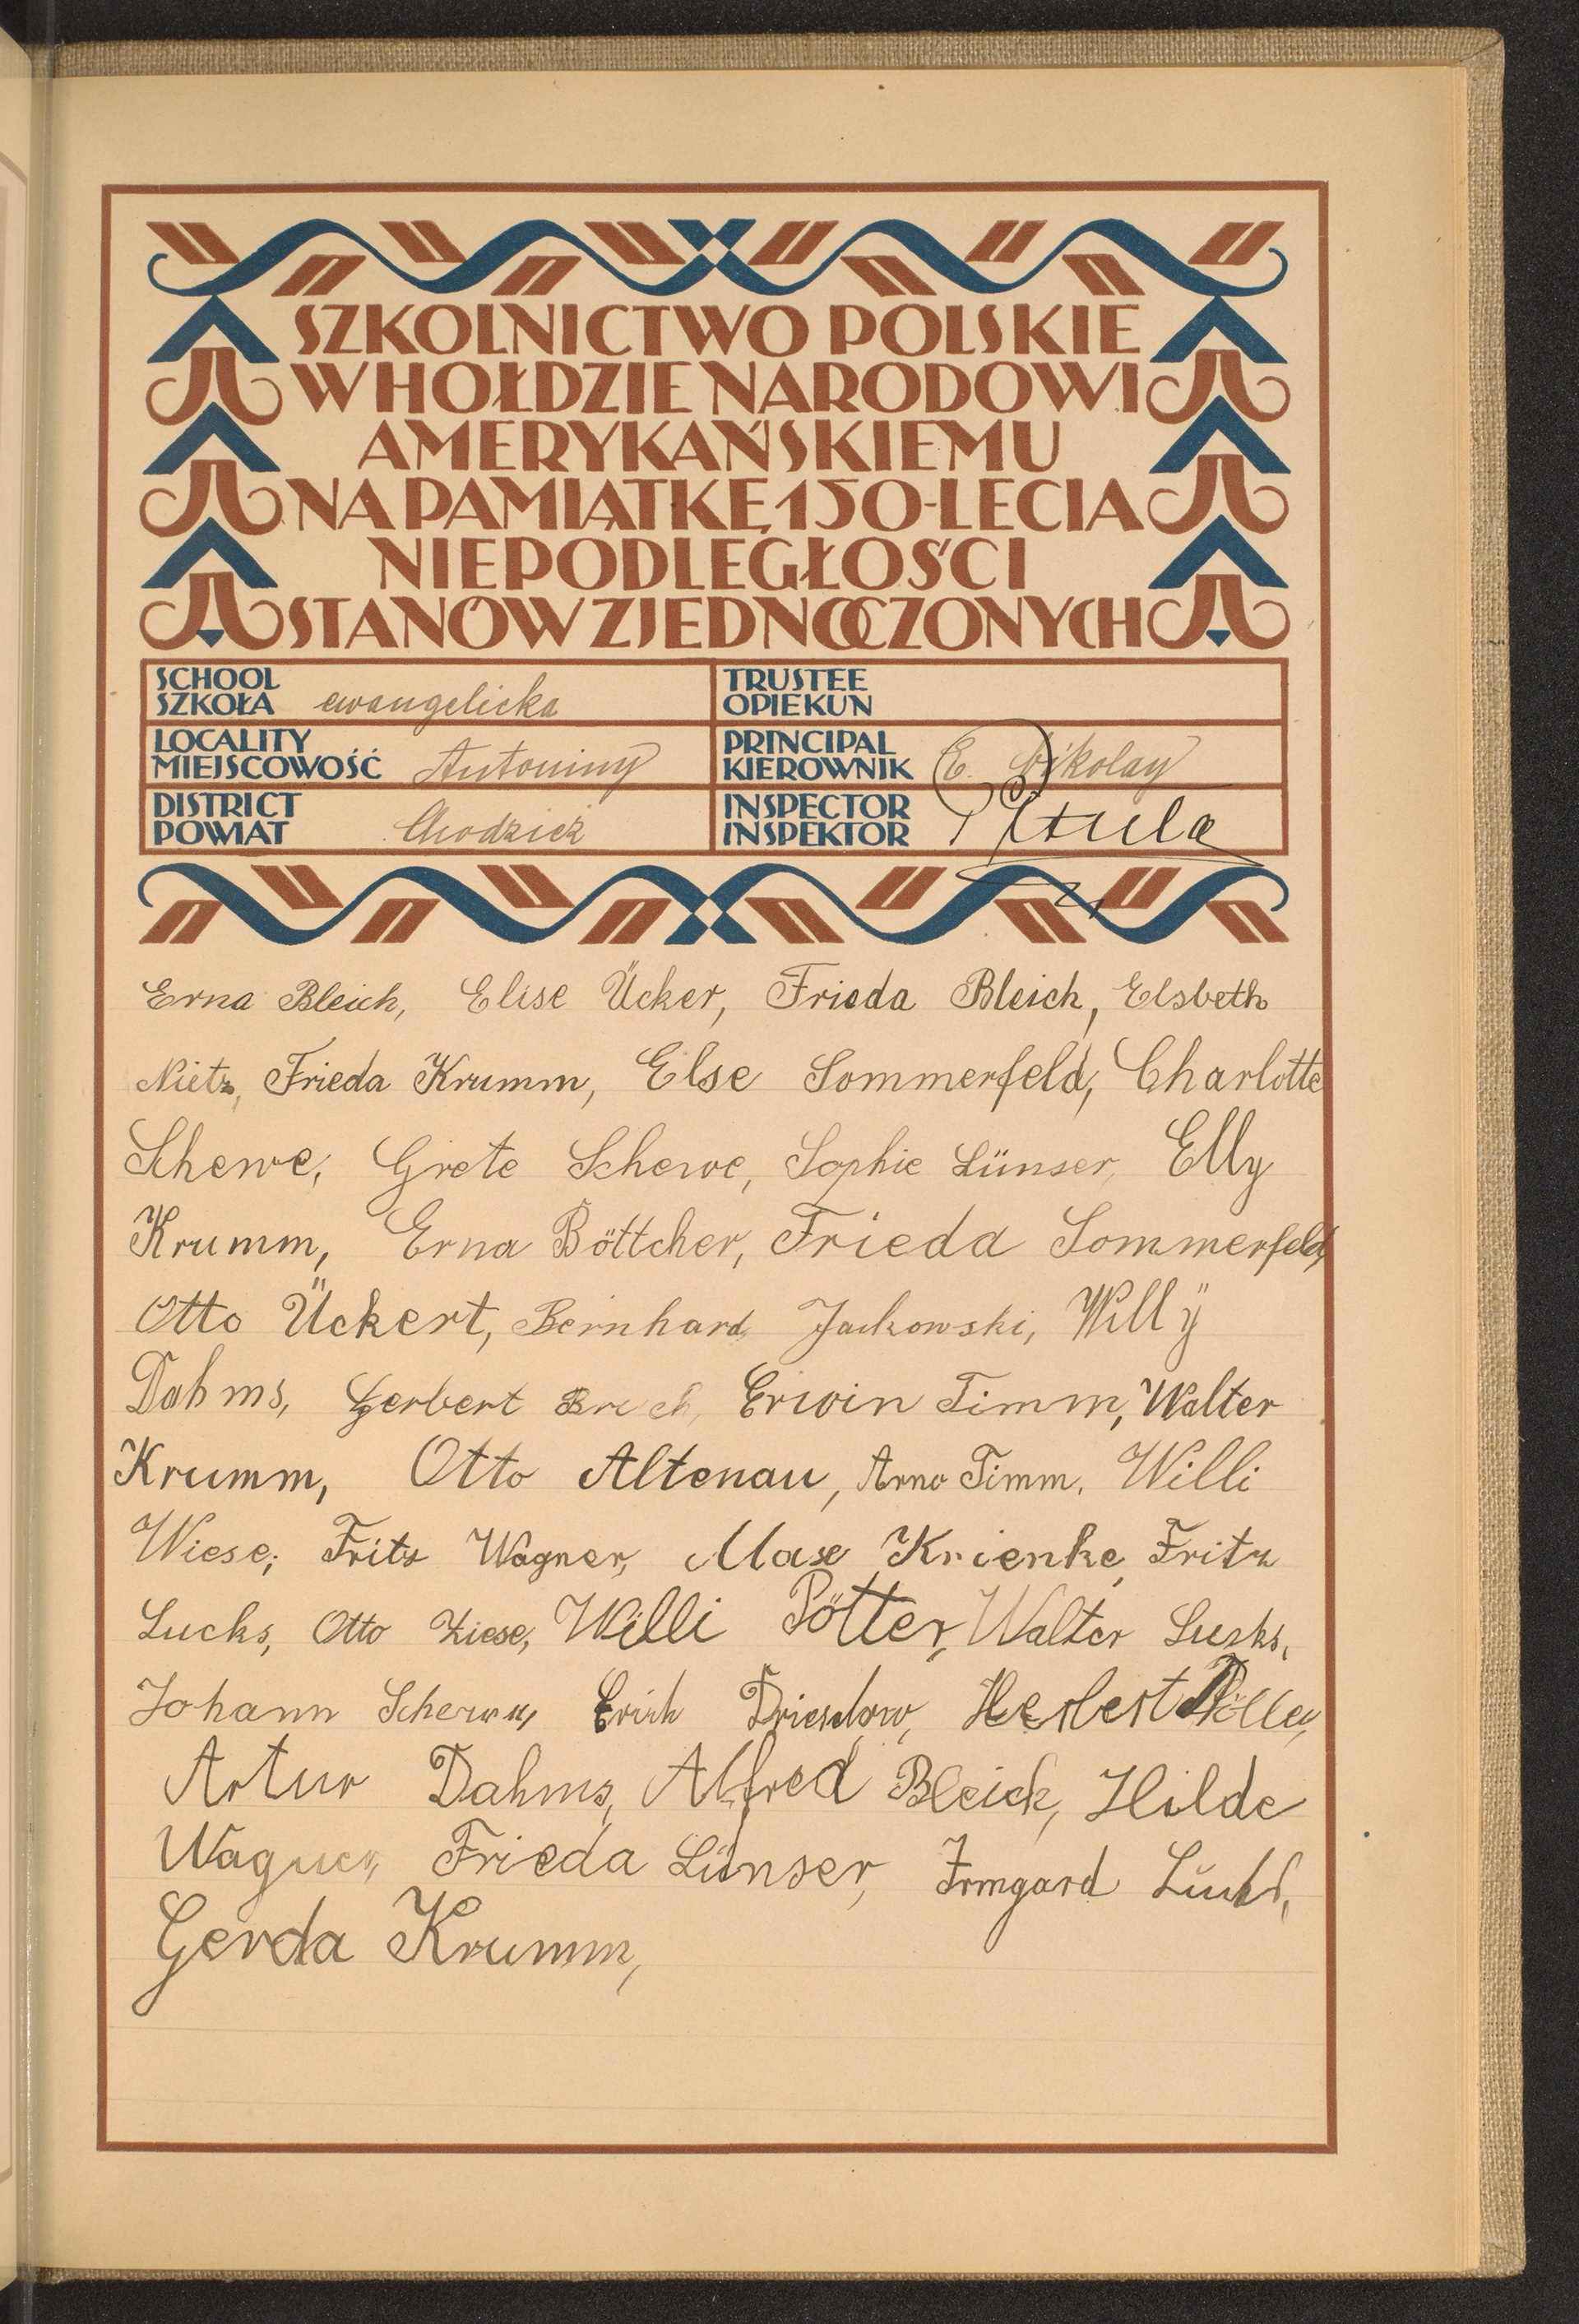 SZKOLNICTWO POLSKIE
W HOŁDZIE NARODOWI
AMERYKAŃSKIEMU
NA PAMIĄTKĘ 150-LECIA
NIEPODLEGŁOŚCI
STANÓW ZJEDNOCZONYCH
SCHOOL
SZKOŁA ewangelicka
TRUSTEE
OPIEKUN
LOCALITY
MIEJSCOWOŚĆ Antoniny
PRINCIPAL
KIEROWNIK E. Nikolay
DISTRICT
POWIAT Chodzież
INSPECTOR
INSPEKTOR
Erna Bleich, Elise Ücker, Frieda Bleich, Elsbeth
Nietz, Frieda Krumm, Else Sommerfeld, Charlotte
Schewe, Grete Schewe, Sophie Lünser, Elly
Krumm, Erna Böttcher, Frieda Sommerfeld,
Otto Ückert, Bernhard Jackowski, Willÿ
Dahms, Herbert Erwin Timm, Walter
Krumm, Otto Altenau, Arno Timm, Willi
Wiese, Fritz Wagner, Max Krienke, Fritz
Lucks, Otto Ziese, Willi Pötter, Walter Lucks,
Johann Erich Herbert
Artur Dahms, Alfred Bleich, Hilde
Wagner, Frieda Lünser, Irmgard
Gerda Krumm,